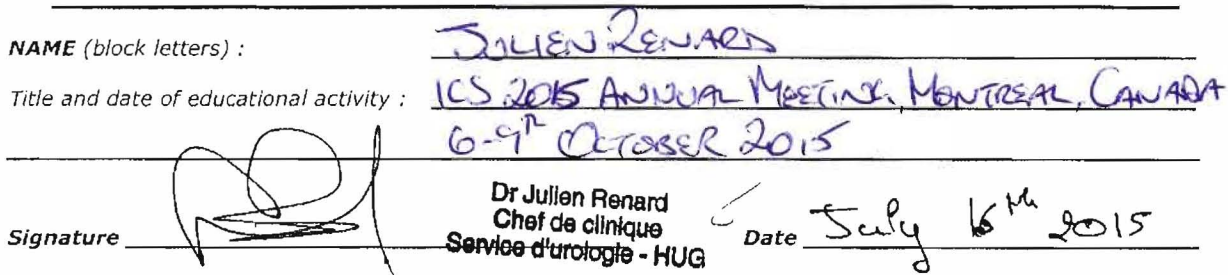 NAME (block letters) : JULIEN RENARD
Title and date of educational activity : ICS 2015 ANNUAL MEETING, MONTREAL, CANADA
6-9th OCTOBER 2015
Dr Julien Renard
Chef de clinique
Service d'urologie - HUG
Signature
Date July 16th 2015